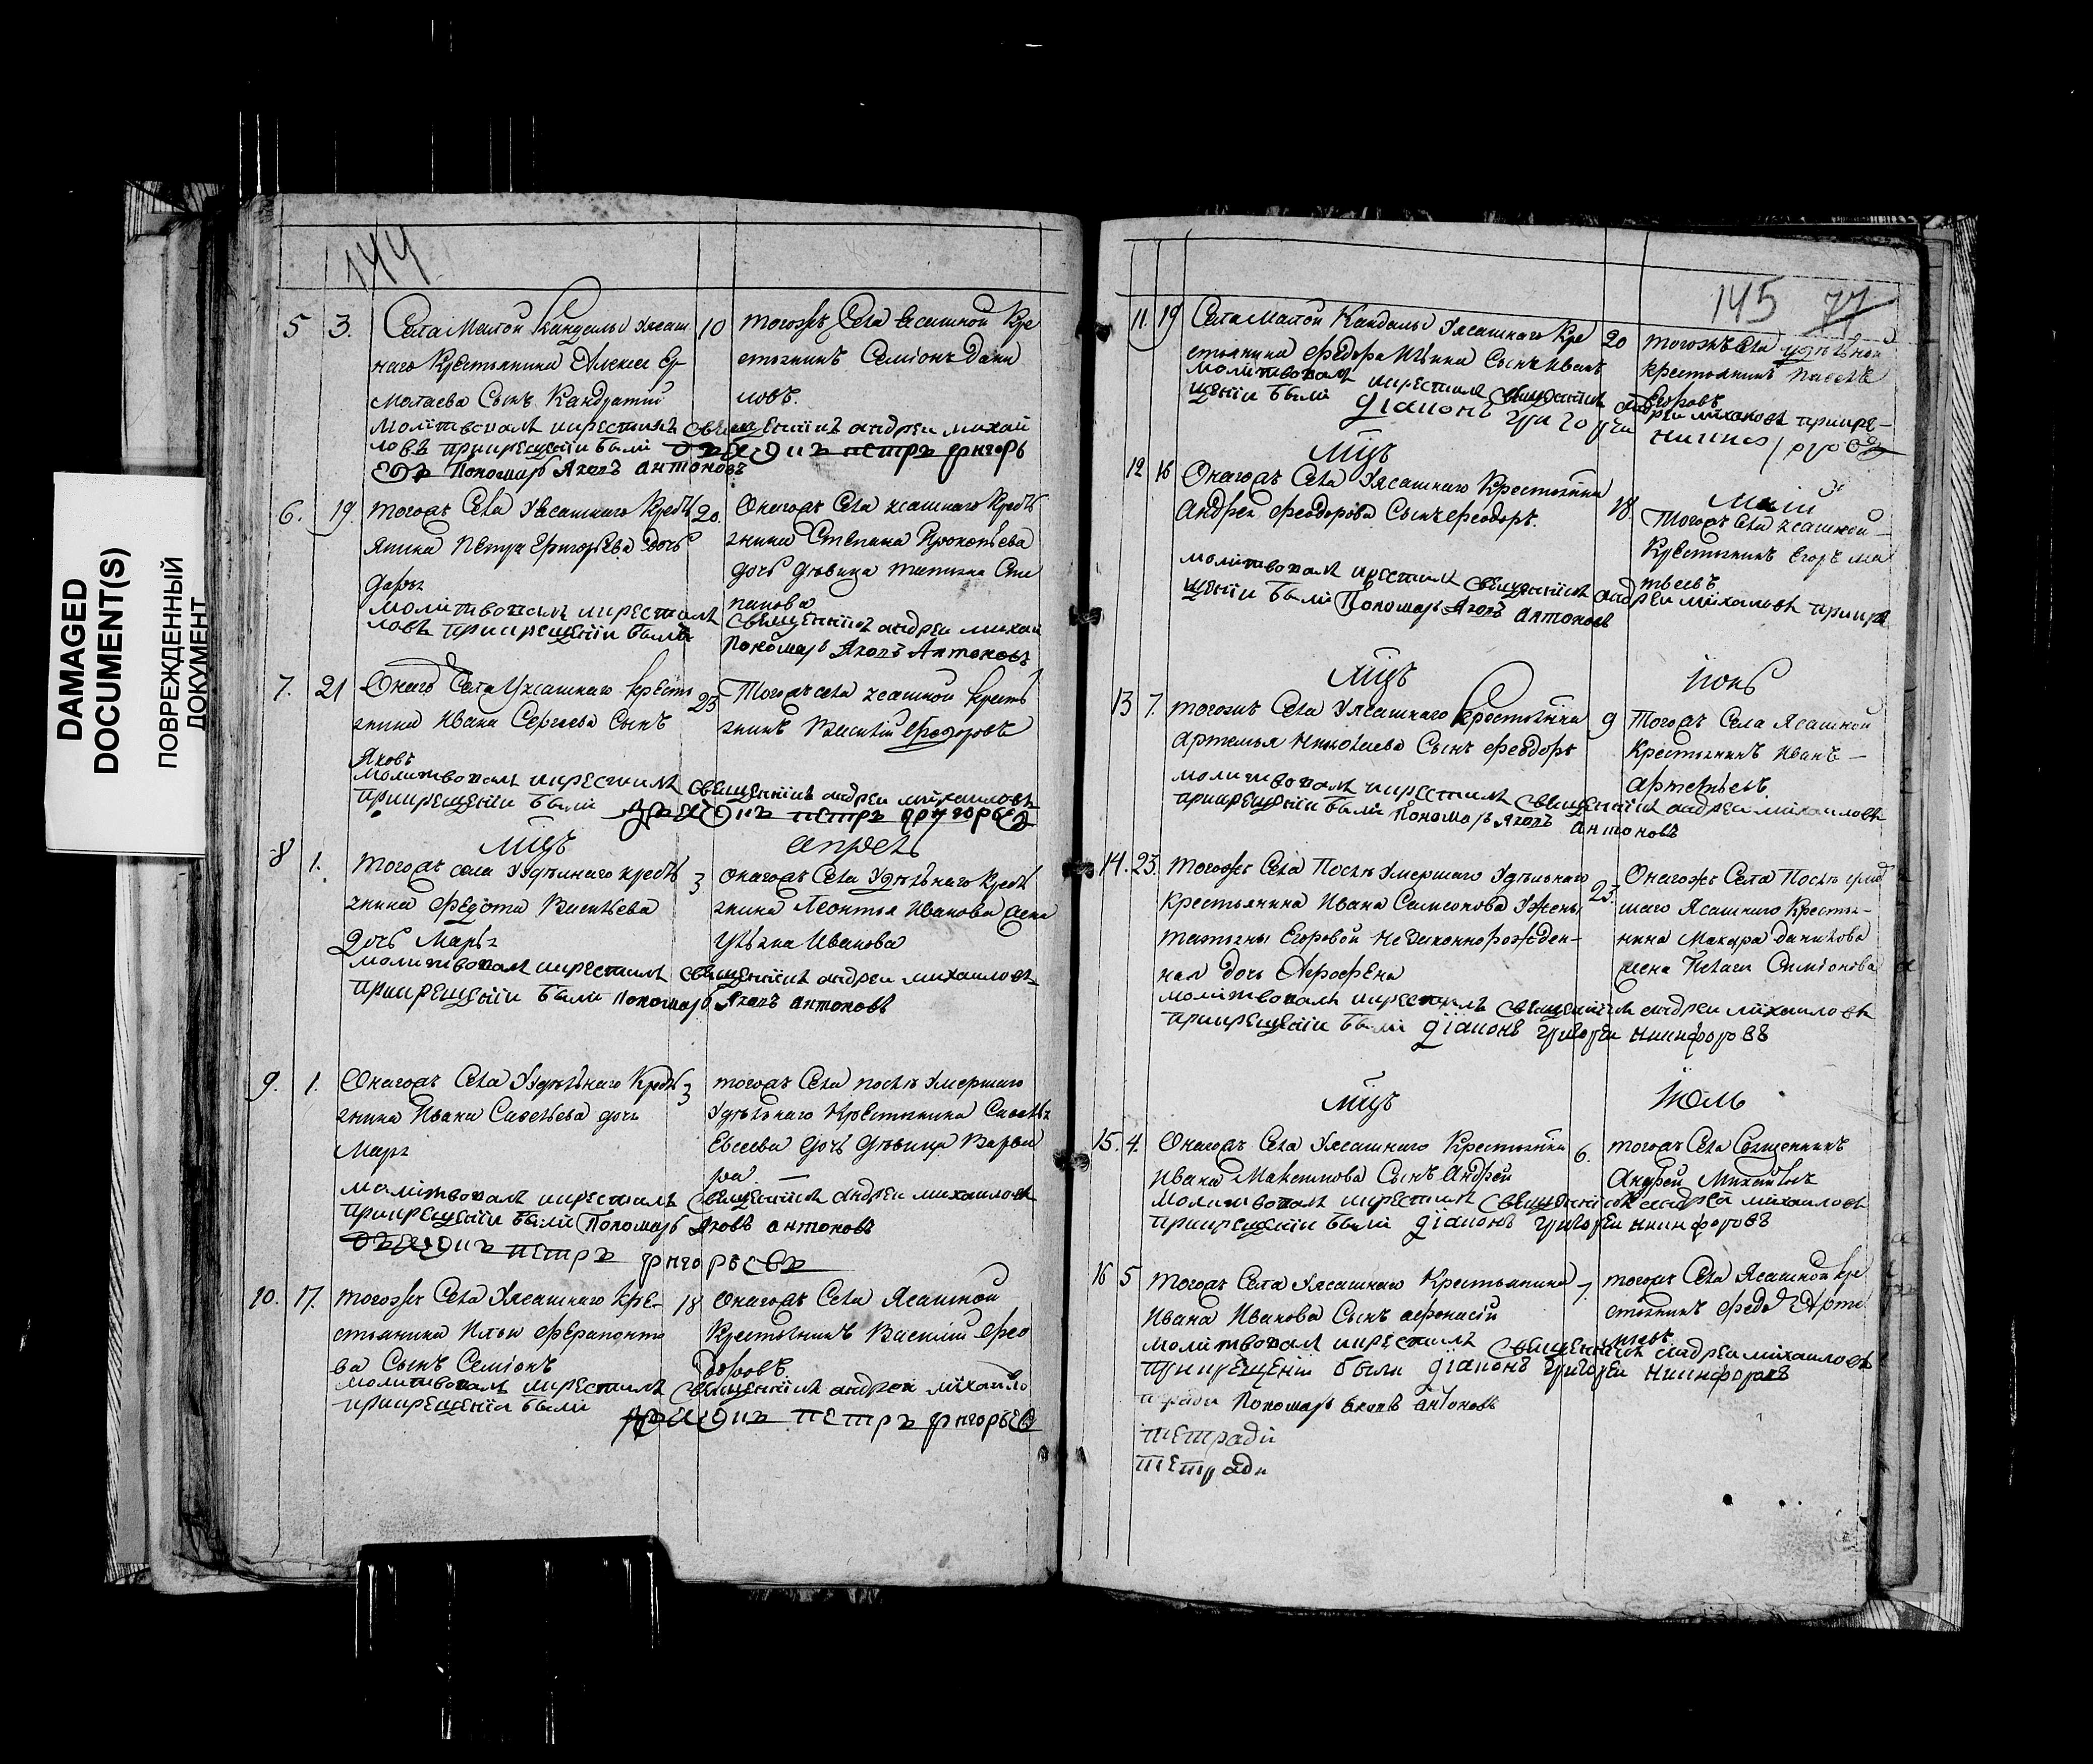 DAMAGED
DOCUMENT(S)
ПОВРЕЖДЕННЫЙ
ДОКУМЕНТ
144
5 3. Села Малой Кандалы Уясаш
наго Крестьянина Алексея Ер
молаева Сынъ Кандратий
10 тогожъ Села Ясашной Кре
стьянинъ Семионъ Дани
ловъ.
молитвовалъ икрестилъ Священникъ андреи михаи
ловъ прикрещении были дьячокъ петръ григорь
евъ Пономарь Яковъ антоновъ
6. 19. тогожъ Села Уясашнаго Кресть
янина Петра Григорьева дочь
дарья
20. Онагожъ Села ясашнаго Кресть
янина Степана Прокопьева
дочь девица татьяна Сте
панова
молитвовалъ икрестилъ Священникъ андреи михаи
ловъ прикрещении были Пономарь Яковъ Антоновъ
7. 21 Онаго Села Уясашнаго кресть
янина Ивана Сергеева Сынъ
Яковъ
23 Тогожъ села ясашной кресть
янинъ Василий Феодоровъ
молитвовалъ икрестилъ Священникъ андреи михаиловъ
прикрещении были дьячокъ петръ григорьев
мцъ апрель
8 1. Тогожъ села Уудельнаго кресть
янина Федота Васильева
Дочь Марья
3 онагожъ Села Удельнаго Кресть
янина Леонтья Иванова жена
Ульяна Иванова
молитвовалъ икрестилъ Священникъ андреи михаиловъ
прикрещении были пономарь Яковъ антоновъ
9. 1. Онагожъ Села Уудельнаго Кресть
янина Ивана Савельева дочь
Марья
3 тогожъ Села после Умершаго
Удельнаго Крестьянина Савелья
Евсеева дочь девица Варва
ра
молитвовалъ икрестилъ Священникъ андреи михаиловъ
прикрещении были Пономарь Яковъ антоновъ
дьячокъ петръ григорьевъ
10. 17. тогожъ Села Уясашнаго Кре-
стьянина Ильи Ферапонто
ва Сынъ Семионъ
18 Онагожъ Села Ясашной
Крестьянинъ Василий Фео
доровъ
молитвовалъ икрестилъ Священникъ андреи михаило
прикрещении были дьячокъ петръ григорьев
145 77
11. 19 Села Малой Кандалы Уясашнаго Кре
стьянина Федора Сынъ Иванъ
20 тогожъ Села удельной
крестьянинъ Павелъ
Егоровъ
молитвовалъ икрестилъ Священникъ андреи михаиловъ прикре-
щении были диаконъ григореи
мцъ Маий
12 16 Онагожъ Села Уясашнаго Крестьянина
Андрея Феодорова Сынъ Феодоръ.
18. Тогожъ Села ясашной
Крестьянинъ Егоръ Ма
тьвевъ
молитвовалъ икрестилъ Священникъ андреи михаиловъ прикре
щении были Пономарь Яковъ антоновъ
мцъ Июнь
13 7. тогожъ Села Уясашнаго Крестьянина
Артемья Николаева Сынъ Феодоръ
9 Тогожъ Села Ясашной
Крестьянинъ Иванъ
Артемьевъ
молитвовалъ икрестилъ Священникъ андреи михаиловъ
прикрещении были Пономарь Яковъ антоновъ
14. 23. тогожъ Села После Умершаго Удельнаго
Крестьянина Ивана Самсонова Ужены
татьяны Егоровой незаконнорожден-
ная дочь Агрофена
23. Онагожъ Села После умер
шаго Ясашнаго Крестья-
нина Макара Данилова
жена Пелагея Симионова
молитвовалъ икрестилъ Священникъ андреи михаиловъ
прикрещении были диаконъ григореи никифоровъ
мцъ Июль
15. 4. Онагожъ Села Уясашнаго Крестьянина
Ивана Максимова Сынъ Андрей
6. тогожъ Села Священникъ
Андрей Михайловъ
молитвовалъ икрестилъ Священникъ андреи михаиловъ
прикрещении были диаконъ григореи никифоровъ
16 5 Тогожъ Села Уясашнаго Крестьянина
Ивана Иванова Сынъ афонасий
7. тогожъ Села Ясашной кре
стьянинъ Федоръ Арте
мьевъ
молитвовалъ икрестилъ Священникъ андреи михаиловъ
прикрещении были диаконъ григореи никифоровъ
Пономарь яковъ антоновъ
тетради
тетради